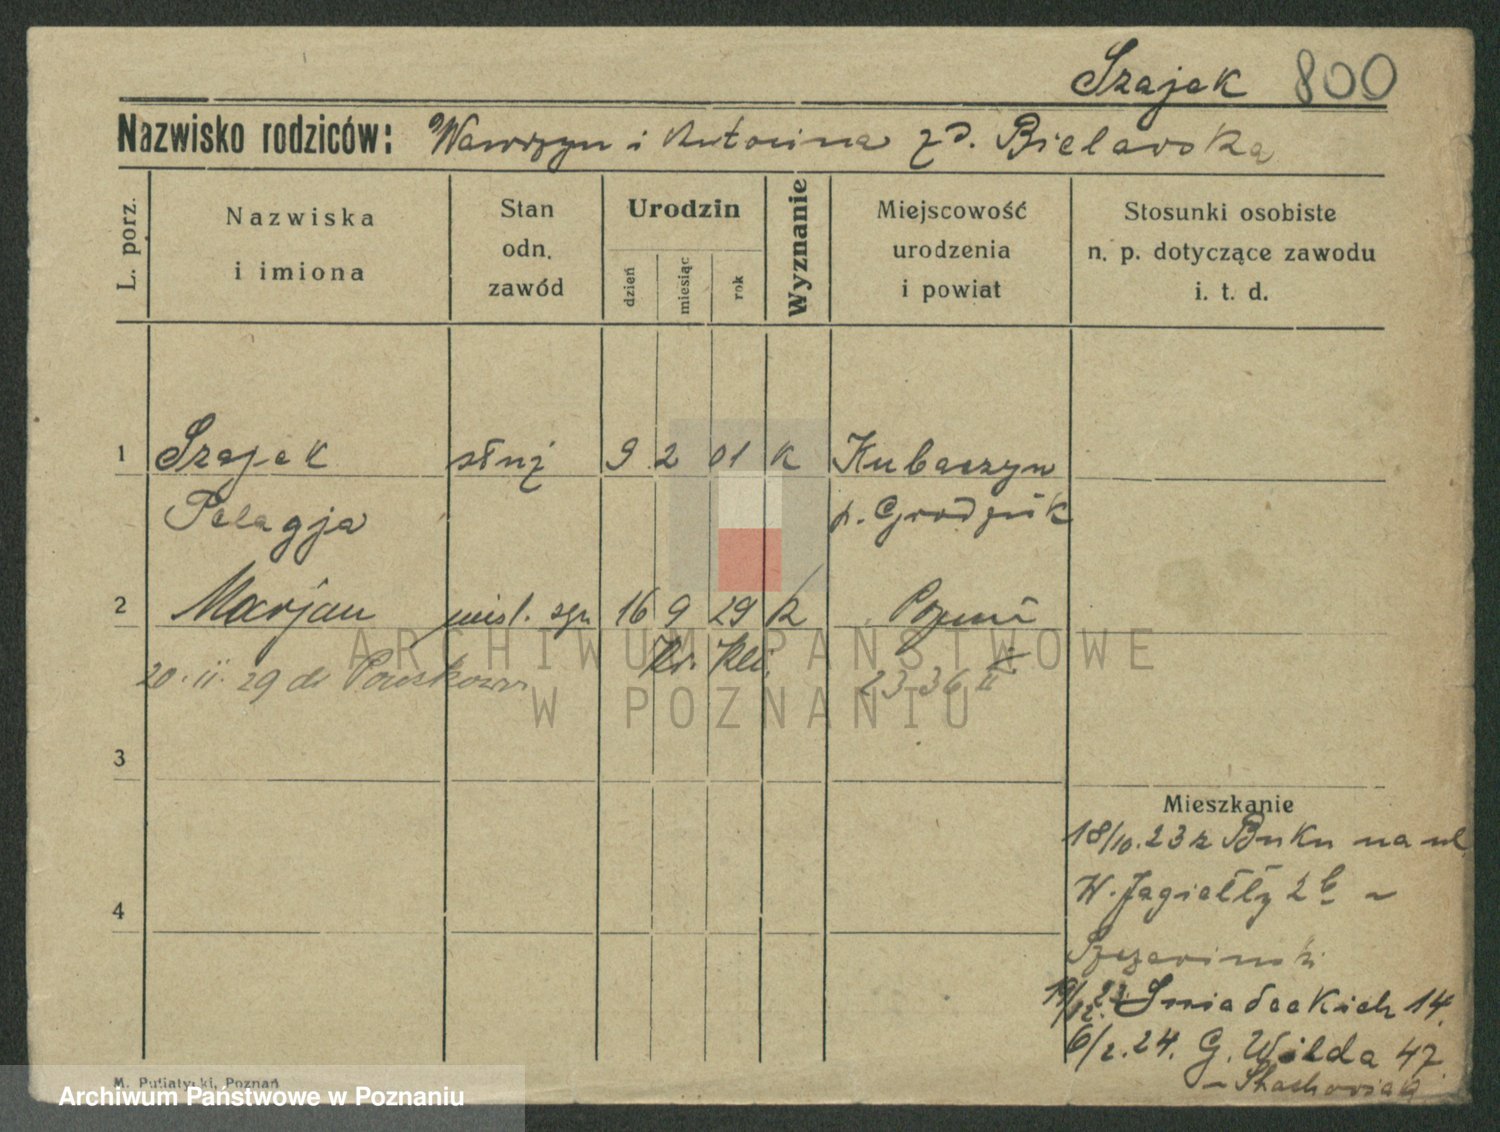 Szajek 800
Nazwisko rodziców: Wawrzyn i Antonina zd. Bielawska
L. porz.
Nazwiska
i imiona
Stan
odn.
zawód
Urodzin
dzień
miesiąc
rok
Wyznanie
Miejscowość
urodzenia
i powiat
Stosunki osobiste
n. p. dotyczące zawodu
i. t. d.
1 Szajek służ 9 2 01 K Kubaczyn
Pelagja p. Grodzisk
2 Marjan 16 9 29 K Pozn
20. II. 29 do
23 36
ARCHIWUM PAŃSTWOWE
W POZNANIU
3
Mieszkanie
18/10.23 z Buku na ul
W. Jagiełły 2b ~
4
19/12.23. Śniadeckich 14.
6/2.24. G. Wilda 47.
M. Putiatycki, Poznań
Archiwum Państwowe w Poznaniu